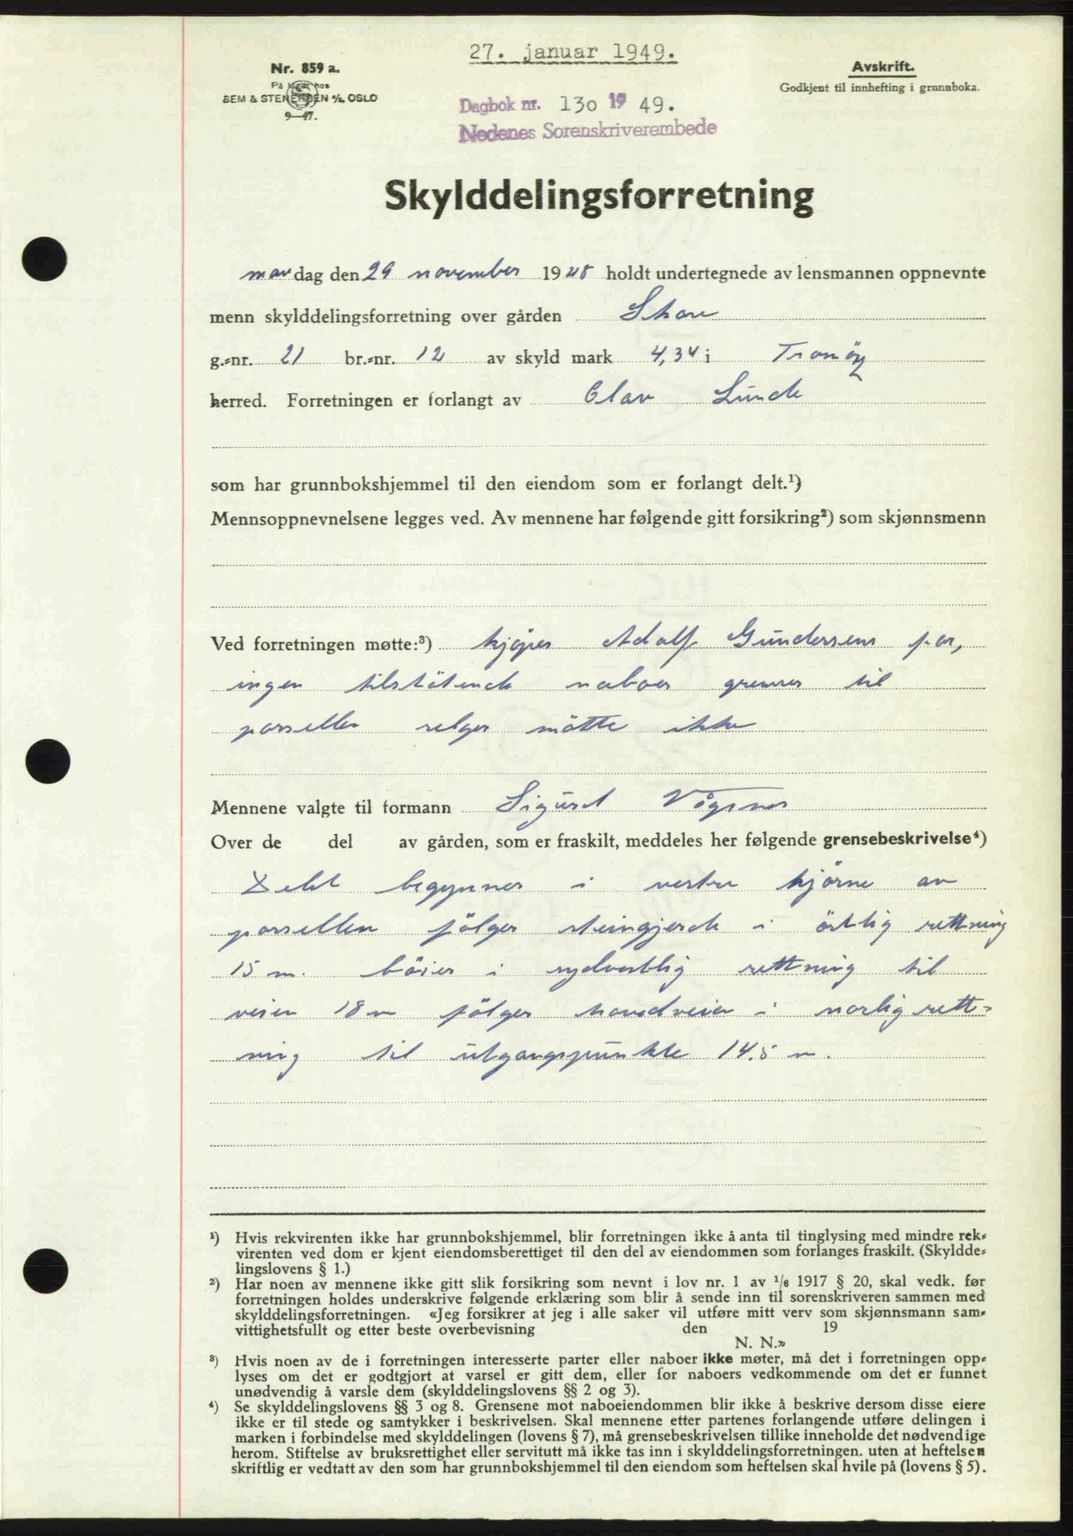 27. januar 1949.
Nr. 859 a.
På lager hos
SEM & STENERSEN A/S, OSLO
9—47.
Avskrift.
Godkjent til innhefting i grunnboka.
Dagbok nr. 130 1949.
Nedenes Sorenskriverembede
Skylddelingsforretning
mandag den 29 november 1948 holdt undertegnede av lensmannen oppnevnte
menn skylddelingsforretning over gården Skare
g.-nr. 21 br.-nr. 12 av skyld mark 4,34 i Tromöy
herred. Forretningen er forlangt av Olav Lunde
som har grunnbokshjemmel til den eiendom som er forlangt delt.¹)
Mennsoppnevnelsene legges ved. Av mennene har følgende gitt forsikring²) som skjønnsmenn
Ved forretningen møtte:³) kjöper Adolf Gundersens far,
ingen tilstötende naboer grenser til
parsellen selger mötte ikke
Mennene valgte til formann Sigurd Vågsnes
Over de del av gården, som er fraskilt, meddeles her følgende grensebeskrivelse⁴)
Delet begynner i vestre hjörne av
parsellen fölger steingjerde i östlig rettning
15 m. böier i sydvestlig rettning til
veien 18 m fölger hovedveien i norlig rett-
ning til utgangspunkte 14.5 m.
¹) Hvis rekvirenten ikke har grunnbokshjemmel, blir forretningen ikke å anta til tinglysing med mindre rek-
virenten ved dom er kjent eiendomsberettiget til den del av eiendommen som forlanges fraskilt. (Skyldde-
lingslovens § 1.)
²) Har noen av mennene ikke gitt slik forsikring som nevnt i lov nr. 1 av 1/6 1917 § 20, skal vedk. før
forretningen holdes underskrive følgende erklæring som blir å sende inn til sorenskriveren sammen med
skylddelingsforretningen. «Jeg forsikrer at jeg i alle saker vil utføre mitt verv som skjønnsmann sam-
vittighetsfullt og etter beste overbevisning den 19
N. N.»
³) Hvis noen av de i forretningen interesserte parter eller naboer ikke møter, må det i forretningen opp-
lyses om det er godtgjort at varsel er gitt dem, eller for naboers vedkommende om det er funnet
unødvendig å varsle dem (skylddelingslovens §§ 2 og 3).
⁴) Se skylddelingslovens §§ 3 og 8. Grensene mot naboeiendommen blir ikke å beskrive dersom disse eiere
ikke er til stede og samtykker i beskrivelsen. Skal mennene etter partenes forlangende utføre delingen i
marken i forbindelse med skylddelingen (lovens § 7), må grensebeskrivelsen tillike inneholde det nødvendige
herom. Stiftelse av bruksrettighet eller servitutt må ikke tas inn i skylddelingsforretningen. uten at heftelsen
skriftlig er vedtatt av den som har grunnbokshjemmel til den eiendom som heftelsen skal hvile på (lovens § 5).